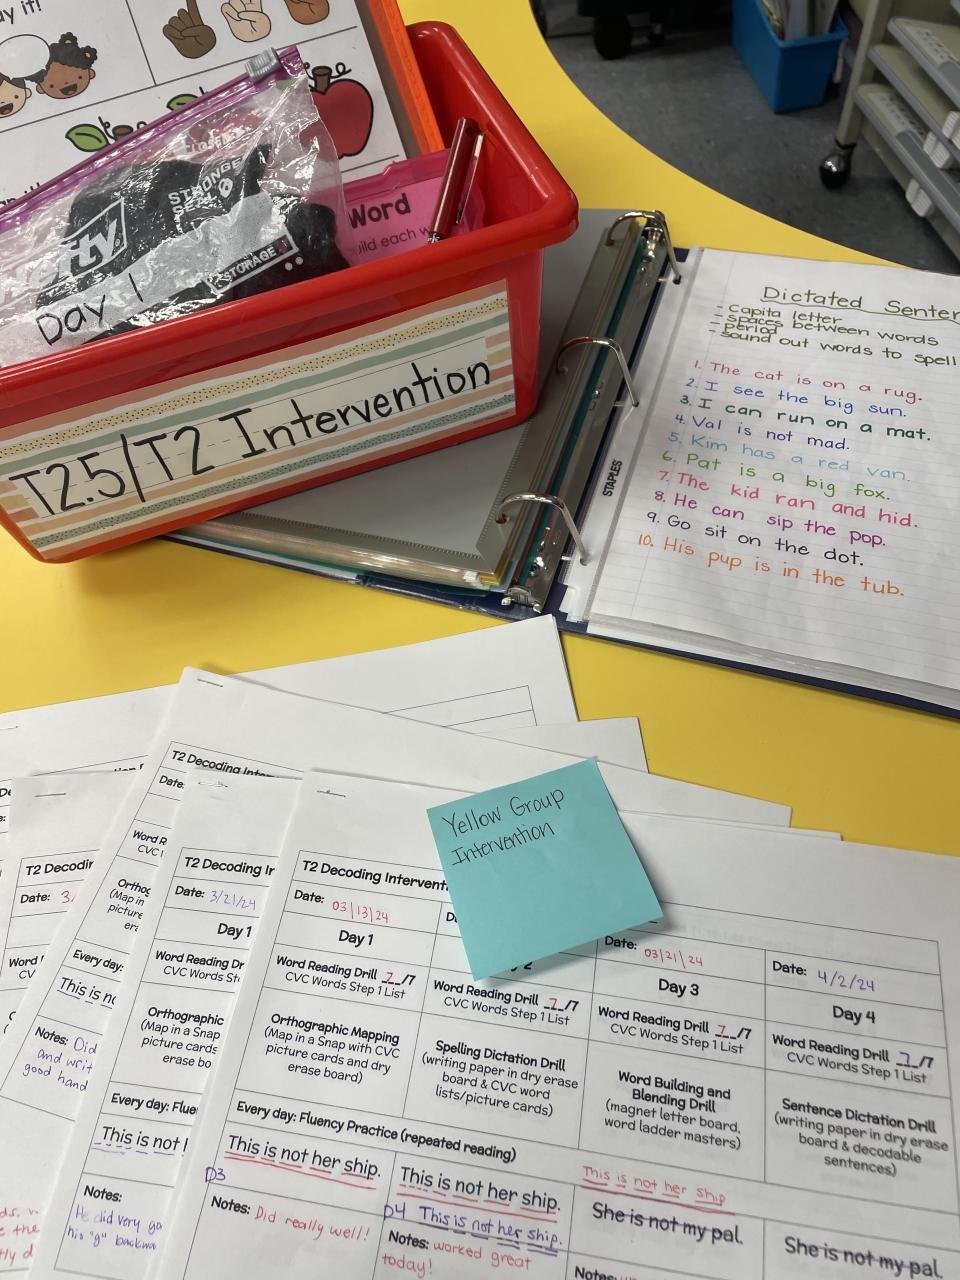 ay it!
CLOSE
STRONG
SEAL
STORAGE
Day 1
Word
build each w
T2.5/T2 Intervention
STAPLES
Dictated Senten
- Capital letter
- spaces between words
- period
- sound out words to spell
1. The cat is on a rug.
2. I see the big sun.
3. I can run on a mat.
4. Val is not mad.
5. Kim has a red van.
6. Pat is a big fox.
7. The kid ran and hid.
8. He can sip the pop.
9. Go sit on the dot.
10. His pup is in the tub.
Yellow Group
Intervention
T2 Decoding Inter
Date:
Word R
CVC
Orthog
(Map in
picture
era
Every day:
This is no
Notes: Did
and writ
good hand
T2 Decodi
Date: 3/
Word
CV
T2 Decoding Ir
Date: 3/21/24
Day 1
Word Reading Dr
CVC Words St
Orthographic
(Map in a Snap
picture cards
erase bo
Every day: Flue
This is not h
Notes:
He did very go
his "g" backwa
T2 Decoding Interventi
Date: 03/13/24
Day 1
Word Reading Drill 7/7
CVC Words Step 1 List
Orthographic Mapping
(Map in a Snap with CVC
picture cards and dry
erase board)
Word Reading Drill 7/7
CVC Words Step 1 List
Spelling Dictation Drill
(writing paper in dry erase
board & CVC word
lists/picture cards)
Date: 03/21/24
Day 3
Word Reading Drill 7/7
CVC Words Step 1 List
Word Building and
Blending Drill
(magnet letter board,
word ladder masters)
Date: 4/2/24
Day 4
Word Reading Drill 7/7
CVC Words Step 1 List
Sentence Dictation Drill
(writing paper in dry erase
board & decodable
sentences)
Every day: Fluency Practice (repeated reading)
This is not her ship.
D3
Notes: Did really well!
This is not her ship.
D4 This is not her ship.
Notes: worked great
today!
This is not her ship
She is not my pal.
Notes:
She is not my pal.